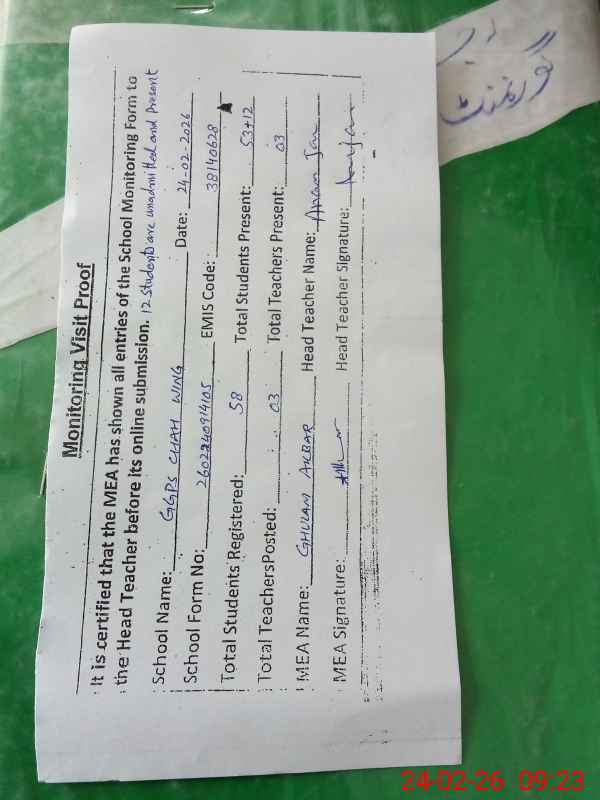 Monitoring Visit Proof
It is certified that the MEA has shown all entries of the School Monitoring Form to
the Head Teacher before its online submission. 12 Students are unadmitted and present
School Name: GGPS CHAH WING Date: 24-02-2026
School Form No: 2602240914105 EMIS Code: 38140628
Total Students Registered: 58 Total Students Present: 53+12
Total TeachersPosted: 03 Total Teachers Present: 03
MEA Name: GHULAM AKBAR Head Teacher Name:
MEA Signature: Head Teacher Signature:
گورنمنٹ
24-02-26 09:23